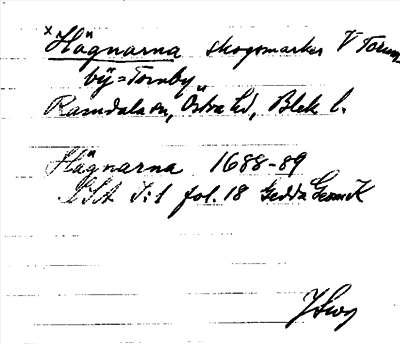 x Hägnarna skogsmarker V Torum
by = Tornby
Ramdala sn, Östra hd, Blek l.
Hägnarna 1688-89
LSA I:1 fol. 18 Gedda Geom K